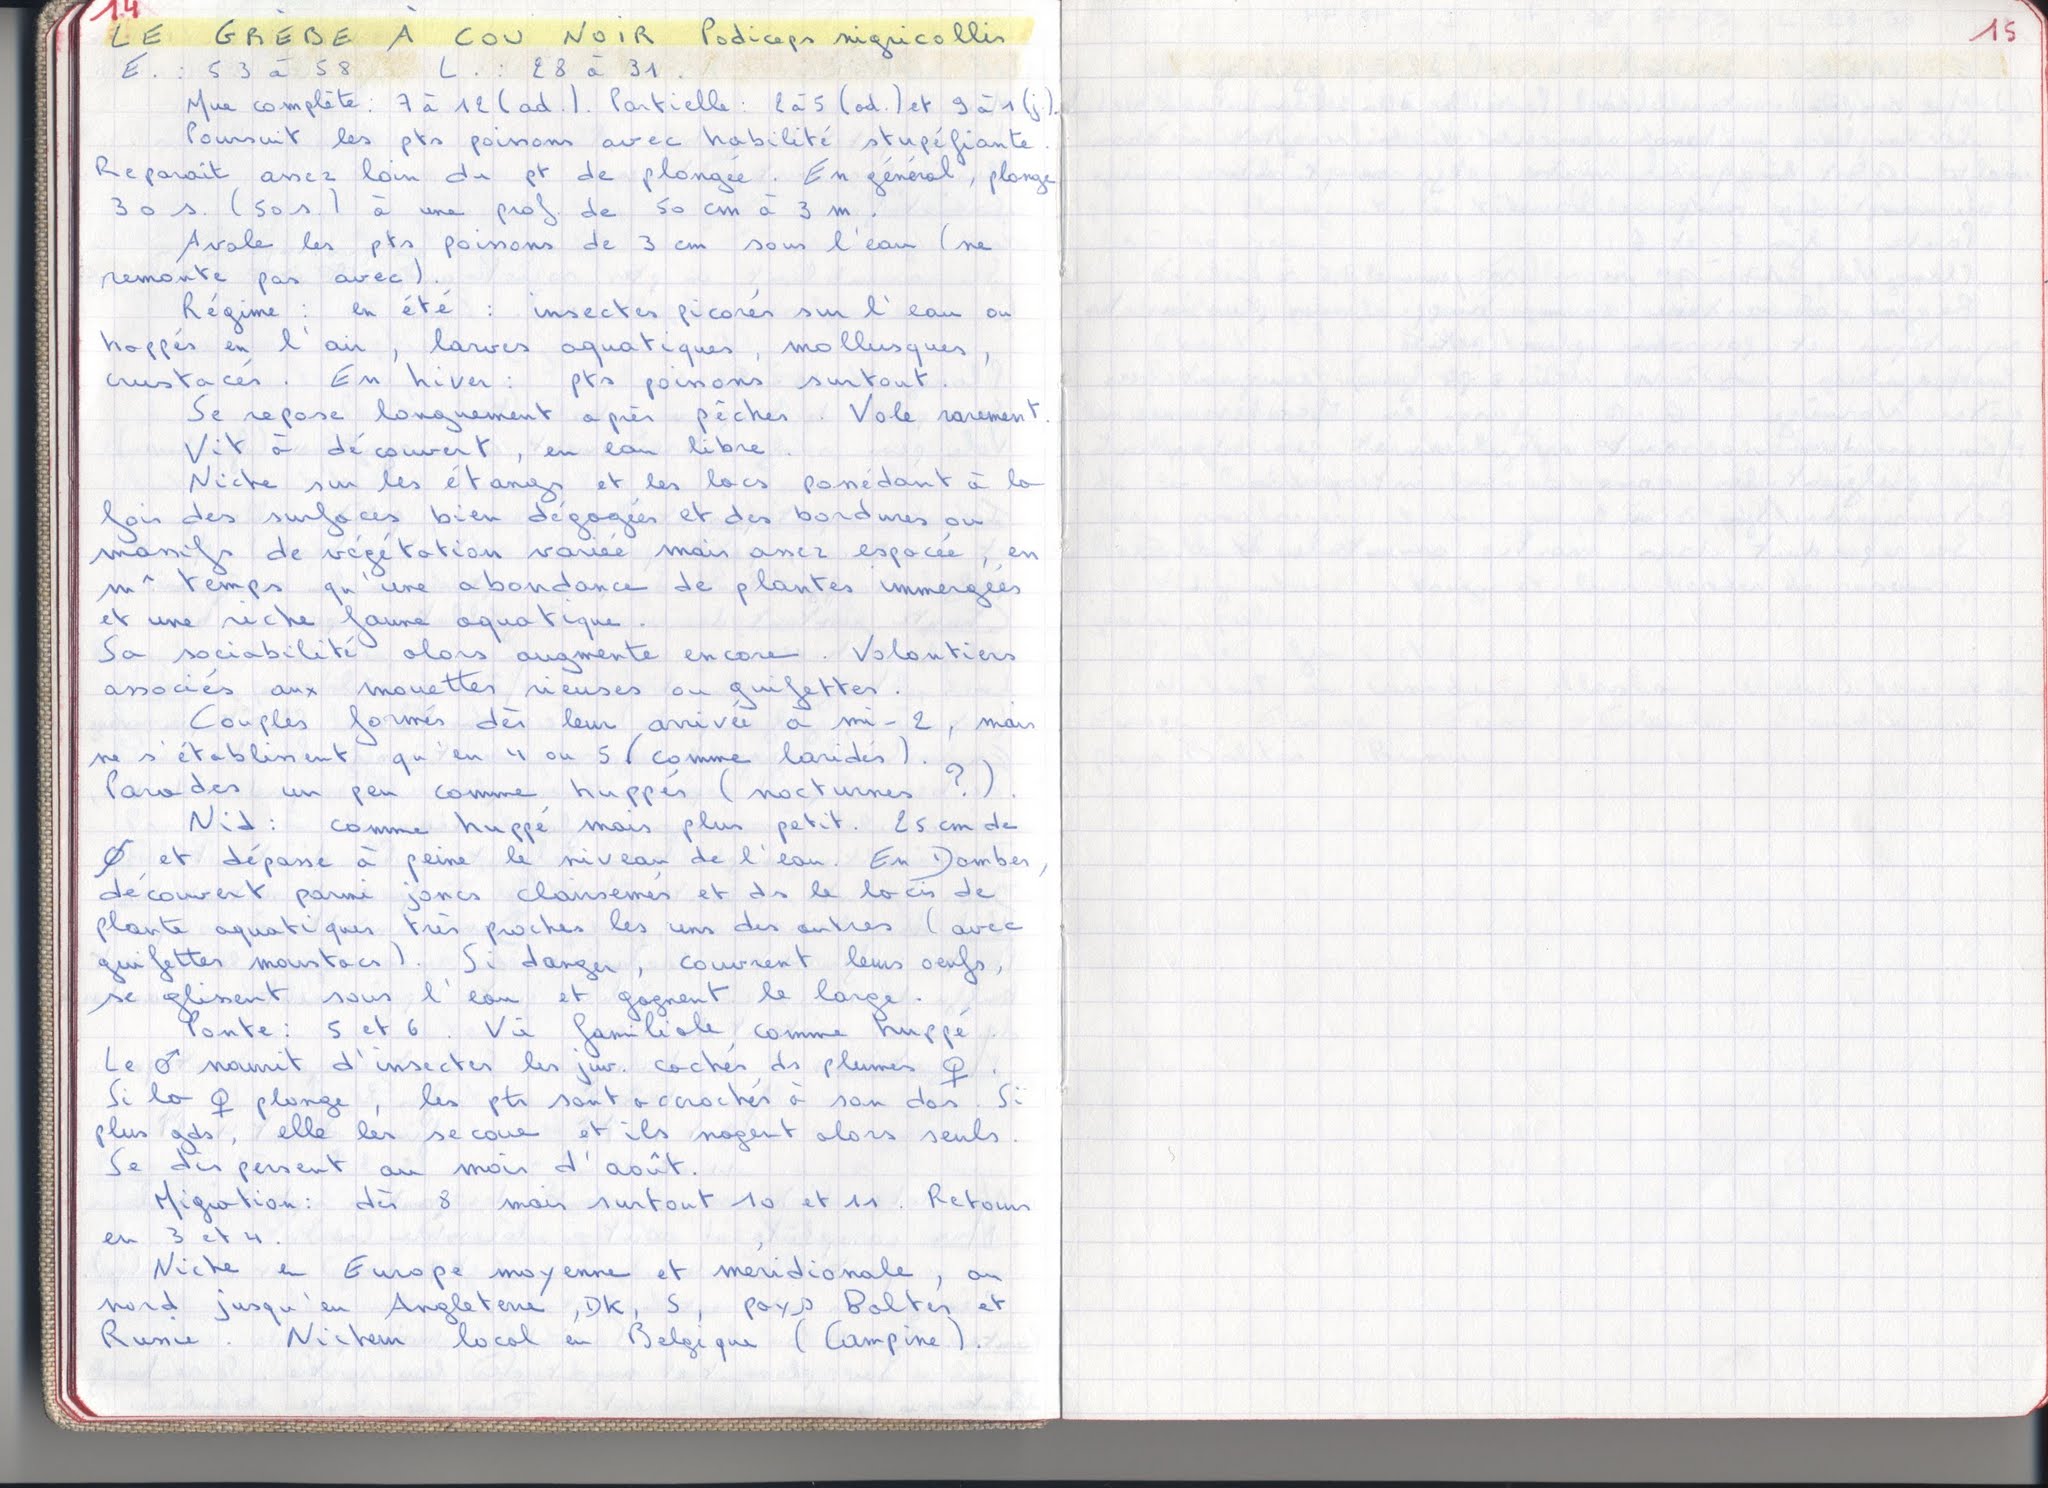 14
LE GRÈBE À COU NOIR Podiceps nigricollis
E. : 53 à 58 L. : 28 à 31.
Mue complète : 7 à 12 (ad.). Partielle : 2 à 5 (ad.) et 9 à 1 (j.).
Poursuit les pts poissons avec habilité stupéfiante.
Reparait assez loin du pt de plongée. En général, plonge
30 s. (50 s.) à une prof. de 50 cm à 3 m.
Avale les pts poissons de 3 cm sous l'eau (ne
remonte pas avec).
Régime : en été : insectes picorés sur l'eau ou
happés en l'air, larves aquatiques, mollusques,
crustacés. En hiver : pts poissons surtout.
Se repose longuement après pêches. Vole rarement.
Vit à découvert, en eau libre.
Niche sur les étangs et les lacs possédant à la
fois des surfaces bien dégagées et des bordures ou
massifs de végétation variée mais assez espacée, en
m^ temps qu'une abondance de plantes immergées
et une riche faune aquatique.
Sa sociabilité alors augmente encore. Volontiers
associés aux mouettes rieuses ou guifettes.
Couples formés dès leur arrivée à mi-2, mais
ne s'établissent qu'en 4 ou 5 (comme laridés).
Parades un peu comme huppés (nocturnes ?).
Nid : comme huppé mais plus petit. 25 cm de
Ø et dépasse à peine le niveau de l'eau. En Dombes,
découvert parmi joncs clairsemés et ds le lacis de
plante aquatiques très proches les uns des autres (avec
guifettes moustacs). Si danger, couvrent leurs oeufs,
se glissent sous l'eau et gagnent le large.
Ponte : 5 et 6. Vie familiale comme huppé.
Le ♂ nourrit d'insectes les juv. cachés ds plumes ♀.
Si la ♀ plonge, les pts sont accrochés à son dos. Si
plus gds, elle les secoue et ils nagent alors seuls.
Se dispersent au mois d'août.
Migration : dès 8 mais surtout 10 et 11. Retours
en 3 et 4.
Niche en Europe moyenne et méridionale, au
nord jusqu'en Angleterre, DK, S, pays Baltes et
Russie. Nicheur local en Belgique (Campine).
15